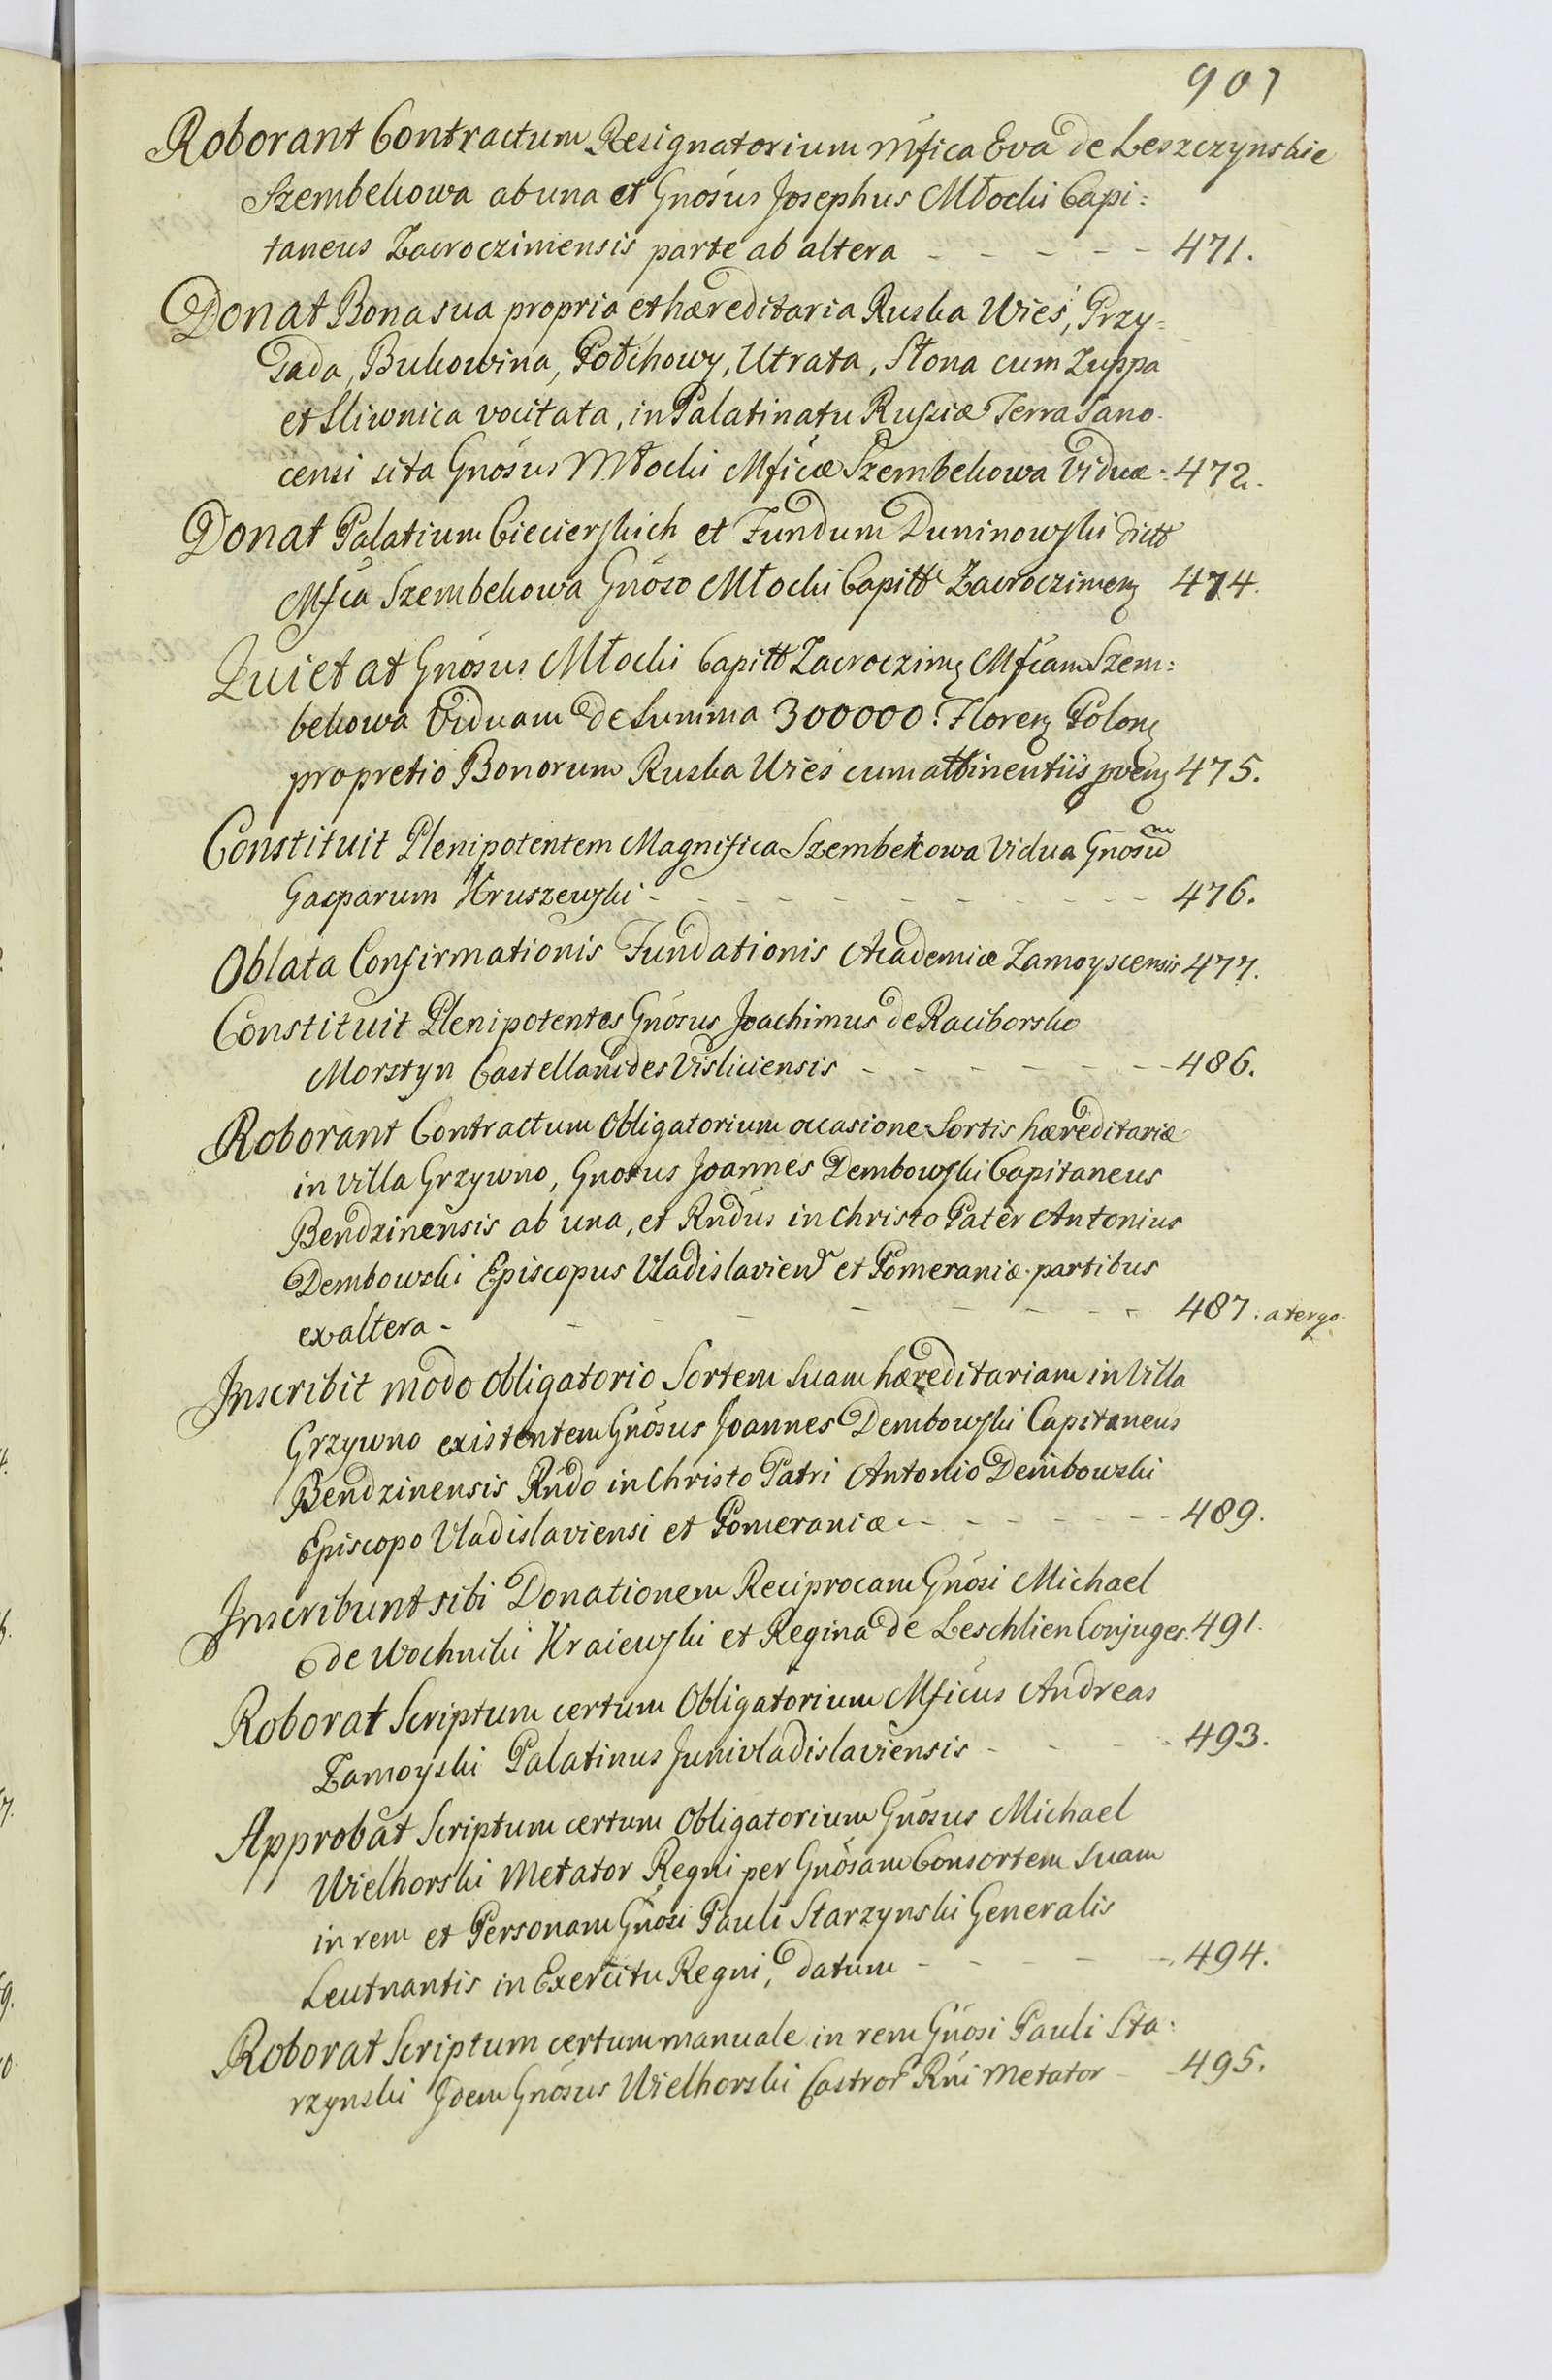 907
Roborant Contractum Resignatorium Mfica Eva de Leszczynskie
Szembekowa ab una et Gnosus Josephus Młocki Capi=
taneus Zacroczimensis parte ab altera - - - - - 471.
Donat Bona sua propria et hæreditaria Ruska Wieś, Przy=
Bukowina, Utrata, Słona cum Zuppa
et Sliwnica vocitata, in Palatinatu Russiæ Terra Sano-
censi sita Gnosus Młocki Mficæ Szembekowa Viduæ - 472.
Donat Palatium Ciecierskich et Fundum Duninowski dictt
Mfca Szembekowa Gnoso Młocki Capitt Zacroczimen 474.
Quietat Gnosus Młocki Capitt Zacroczim Mficam Szem=
bekowa Viduam de Summa 300000. Floren Polon
pro pretio Bonorum Ruska Wieś cum attinentiis proven 475.
Constituit Plenipotentem Magnifica Szembekowa Vidua Gnosum
Gasparum Kruszewski - - - - - - - - - 476.
Oblata Confirmationis Fundationis Academiæ Zamoyscensis 477.
Constituit Plenipotentes Gnosus Joachimus de Raciborsko
Morstyn Castellanides Visliciensis - - - - - - - 486.
Roborant Contractum Obligatorium occasione Sortis hæreditariæ
in Villa Grzywno, Gnosus Joannes Dembowski Capitaneus
Bendzinensis ab una, et Rndus in Christo Pater Antonius
Dembowski Episcopus Vladislavien et Pomeraniæ partibus
ex altera - - - - - - - - 487. a tergo.
Inscribit modo obligatorio Sortem Suam hæreditariam in Villa
Grzywno existentem Gnosus Joannes Dembowski Capitaneus
Bendzinensis Rndo in Christo Patri Antonio Dembowski
Episcopo Vladislaviensi et Pomeraniæ - - - - - - 489.
Inscribunt sibi Donationem Reciprocam Gnosi Michael
de Wochniki Kraiewski et Regina de Leschlien Conjuges. 491.
Roborat Scriptum certum Obligatorium Mficus Andreas
Zamoyski Palatinus Junivladislaviensis - - - - 493.
Approbat Scriptum certum Obligatorium Gnosus Michael
Wielhorski Metator Regni per Gnosam Consortem Suam
in rem et Personam Gnosi Pauli Starzynski Generalis
Leutnantis in Exercitu Regni, datum - - - - - 494.
Roborat Scriptum certum manuale in rem Gnosi Pauli Sta=
rzynski Idem Gnosus Wielhorski Castror Rni Metator - - 495.